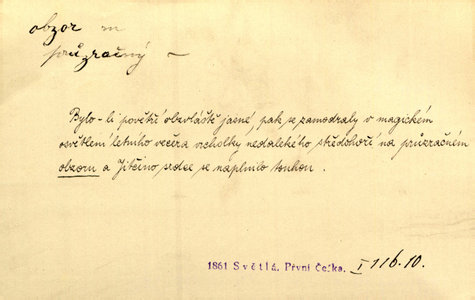 obzor m
průzračný –
Bylo-li povětří obzvláště jasné, pak se zamodraly v magickém
osvětlení letního večera vrcholky nedalekého středohoří na průzračném
obzoru a Jitčino srdce se naplnilo touhou.
1861 Světlá. První Češka. I 116.10.